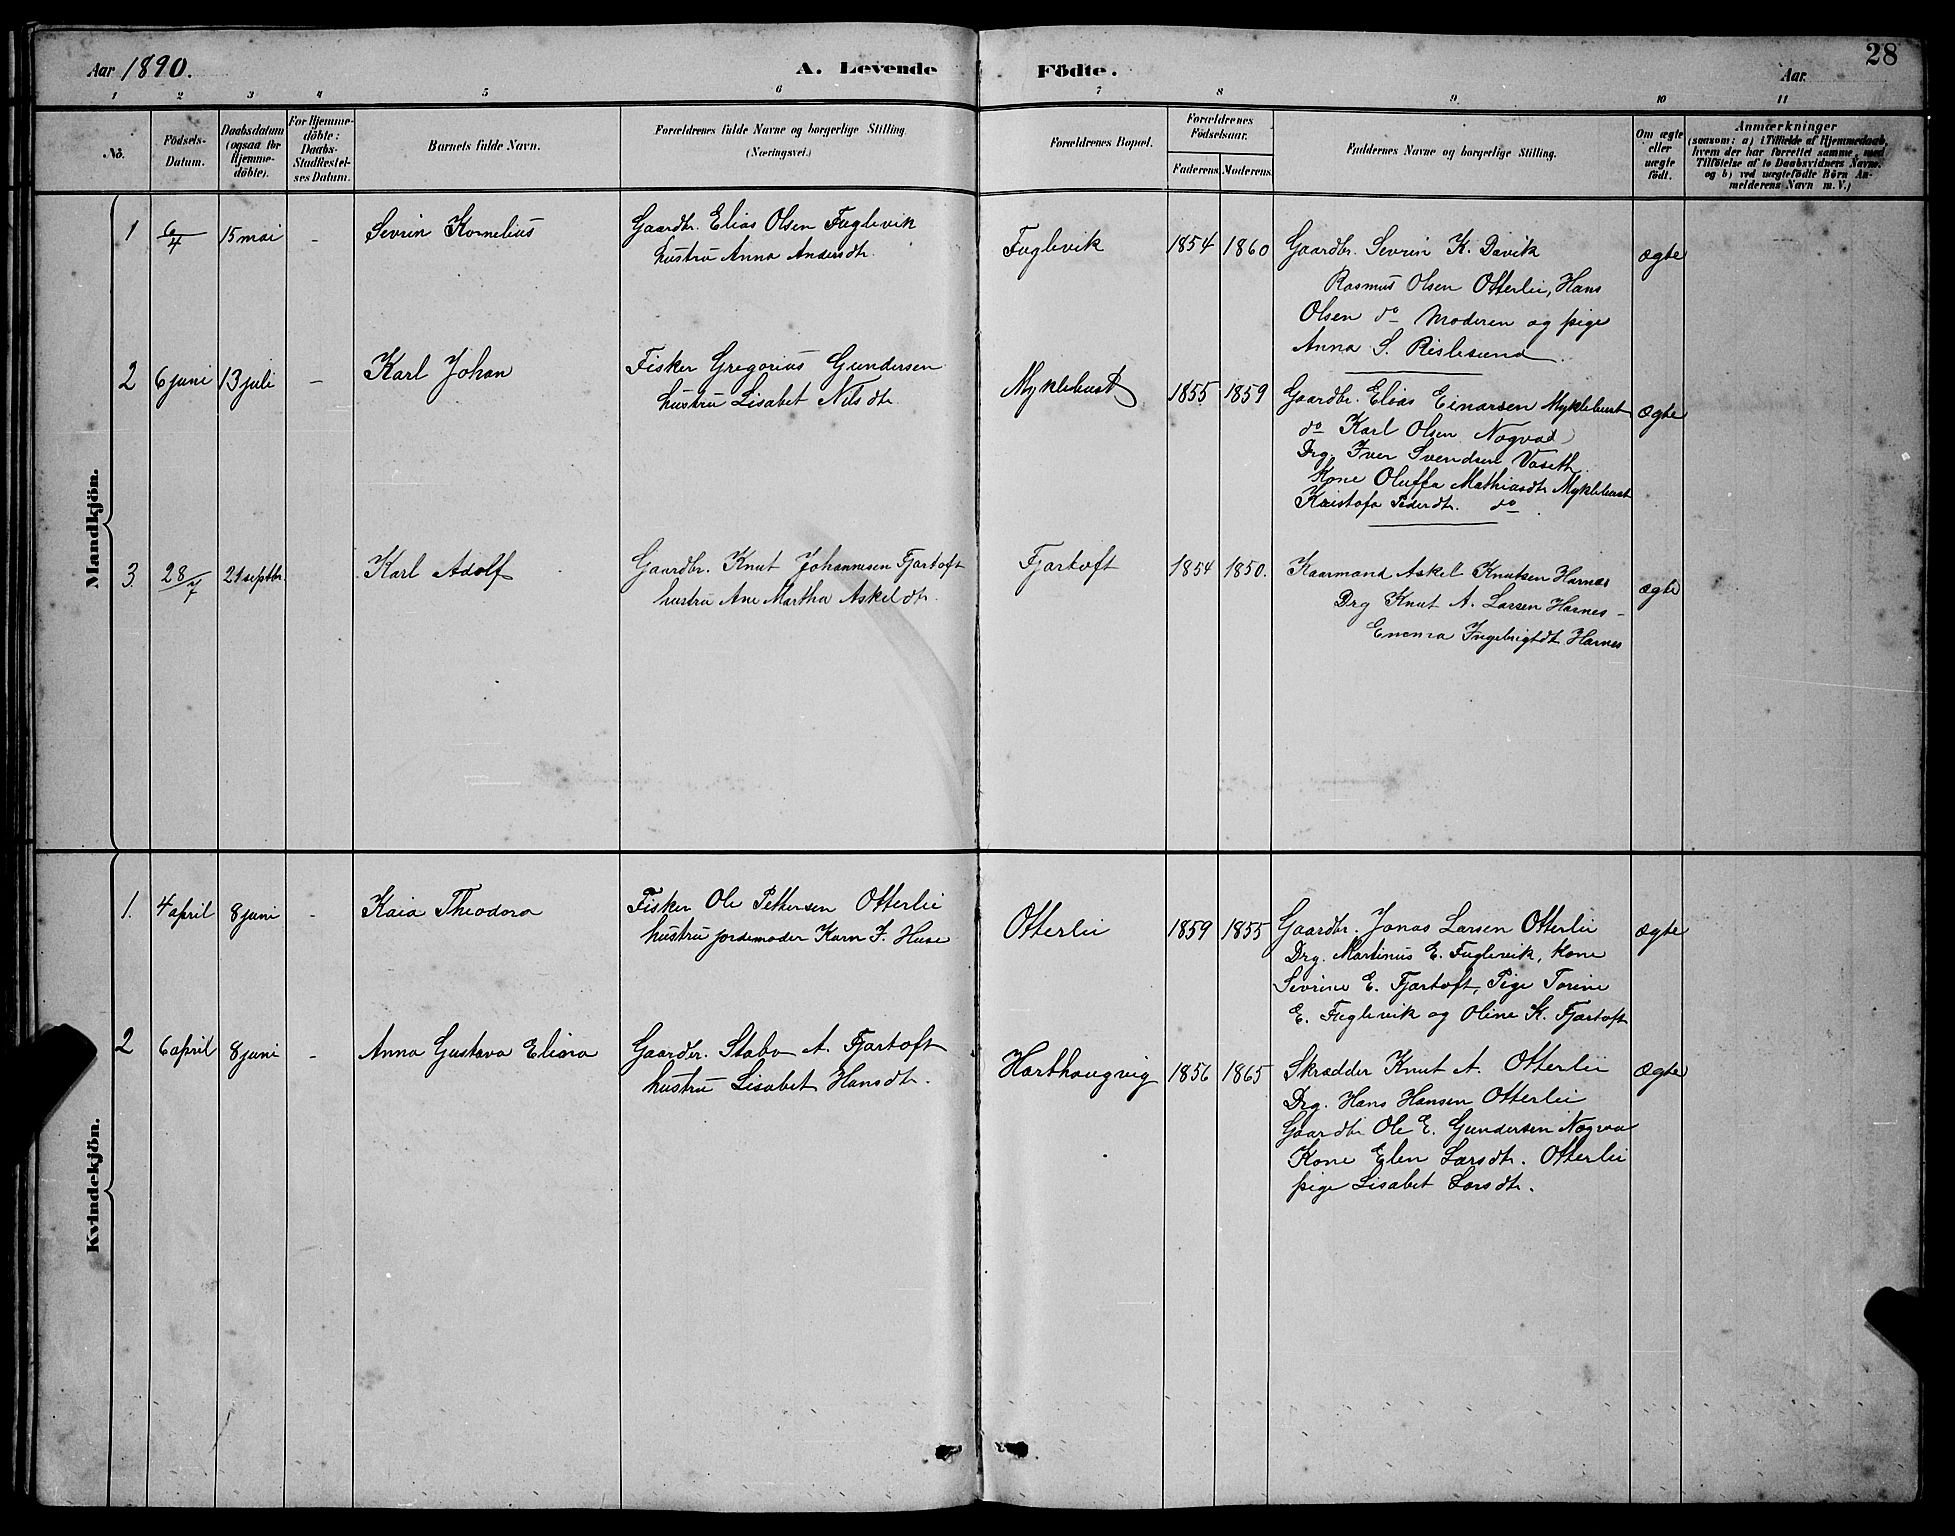 28
Aar 1890.
A. Levende Födte.
Aar.
1 2 3 4 5 6 7 8 9 10 11
No.
Födsels-
Datum.
Daabsdatum
(ogsaa for
Hjemme-
döbte).
For Hjemme-
döbte:
Daabs-
Stadfæstel-
ses Datum.
Barnets fulde Navn.
Forældrenes fulde Navne og borgerlige Stilling.
(Næringsvei.)
Forældrenes Bopæl.
Forældrenes
Födselsaar.
Faderens. Moderens.
Faddernes Navne og borgerlige Stilling.
Om ægte
eller
uægte
födt.
Anmærkninger
(saasom: a) i Tilfælde af Hjemmedaab,
hvem der har forrettet samme, med
Tilföielse af to Daabsvidners Navne.
og b) ved uægtefödte Börn An-
melderens Navn m. V.)
Mandkjön.
1 6/4 15 mai - Sevrin Kornelius
Gaardbr. Elias Olsen Fuglevik
hustru Anna Andersdtr.
Fuglevik 1854 1860
Gaardbr. Sevrin K. Davik
Rasmus Olsen Otterlei, Hans
Olsen do Moderen og pige
Anna S. Rislesund
ægte
2 6 juni 13 juli - Karl Johan
Fisker Gregorius Gundersen
hustru Lisabet Nilsdtr.
Myklebust 1855 1859
Gaardbr. Elias Einarsen Myklebust
do Karl Olsen Nogvad
Drg. Iver Svendsen Vaseth
Kone Oluffa Mathiasdtr Myklebust
Kristofa Pederdtr. do
ægte
3 28/7 21 septbr. Karl Adolf
Gaardbr. Knut Johannesen Fjørtoft
hustru Ane Martha Askeldtr.
Fjørtoft 1854 1850.
Kaarmand Askel Knutsen Harnes
Drg Knut A. Larsen Harnes -
Emma Ingebrigtdt Harnes
ægte
Kvindekjön.
1. 4 april 8 juni - Kaia Theodora
Fisker Ole Pettersen Otterlei
hustru jordemoder Karn J. Huse
Otterlei 1859 1855
Gaardbr. Jonas Larsen Otterlei
Drg. Martinus E. Fuglevik, kone
Sevrine E. Fjørtoft, Pige Torine
E. Fuglevik og Oline K. Fjørtoft
ægte
2 6 april 8 juni - Anna Gustava Eliana
Gaardbr. Stabo A. Fjørtoft
hustru Lisabet Hansdtr.
Harthaugvig 1856 1865
Skrædder Knut A. Otterlei
Drg. Hans Hansen Otterlei
Gaardbr Ole E. Gundersen Nogvaa
Kone Elen Larsdtr. Otterlei
pige Lisabet Larsdtr.
ægte